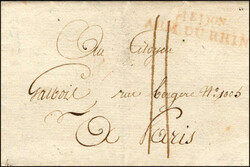 ARM DU RHIN
Au Citoyen
rue bergere N° 1005
A Paris